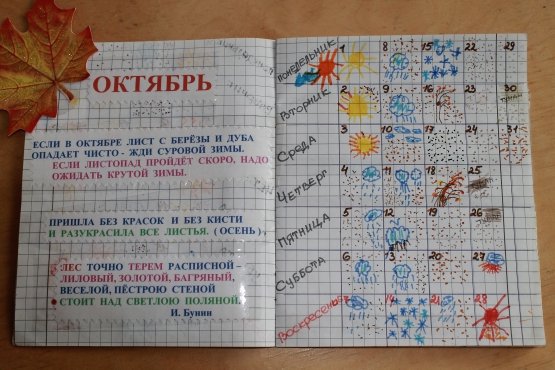 ОКТЯБРЬ
ЕСЛИ В ОКТЯБРЕ ЛИСТ С БЕРЁЗЫ И ДУБА
ОПАДАЕТ ЧИСТО - ЖДИ СУРОВОЙ ЗИМЫ.
ЕСЛИ ЛИСТОПАД ПРОЙДЁТ СКОРО, НАДО
ОЖИДАТЬ КРУТОЙ ЗИМЫ.
ПРИШЛА БЕЗ КРАСОК И БЕЗ КИСТИ
И РАЗУКРАСИЛА ВСЕ ЛИСТЬЯ. (ОСЕНЬ).
ЛЕС ТОЧНО ТЕРЕМ РАСПИСНОЙ –
ЛИЛОВЫЙ, ЗОЛОТОЙ, БАГРЯНЫЙ,
ВЕСЕЛОЙ, ПЁСТРОЮ СТЕНОЙ
СТОИТ НАД СВЕТЛОЮ ПОЛЯНОЙ.
И. Бунин
Понедельник 1 8 15 22 29
Вторник 2 9 16 23 30
Туман
Среда 3 10 17 24 31
Четверг 4 11 18 25
Пятница 5 12 19 26
Суббота 6 13 20 27
Воскресенье 7 14 21 28